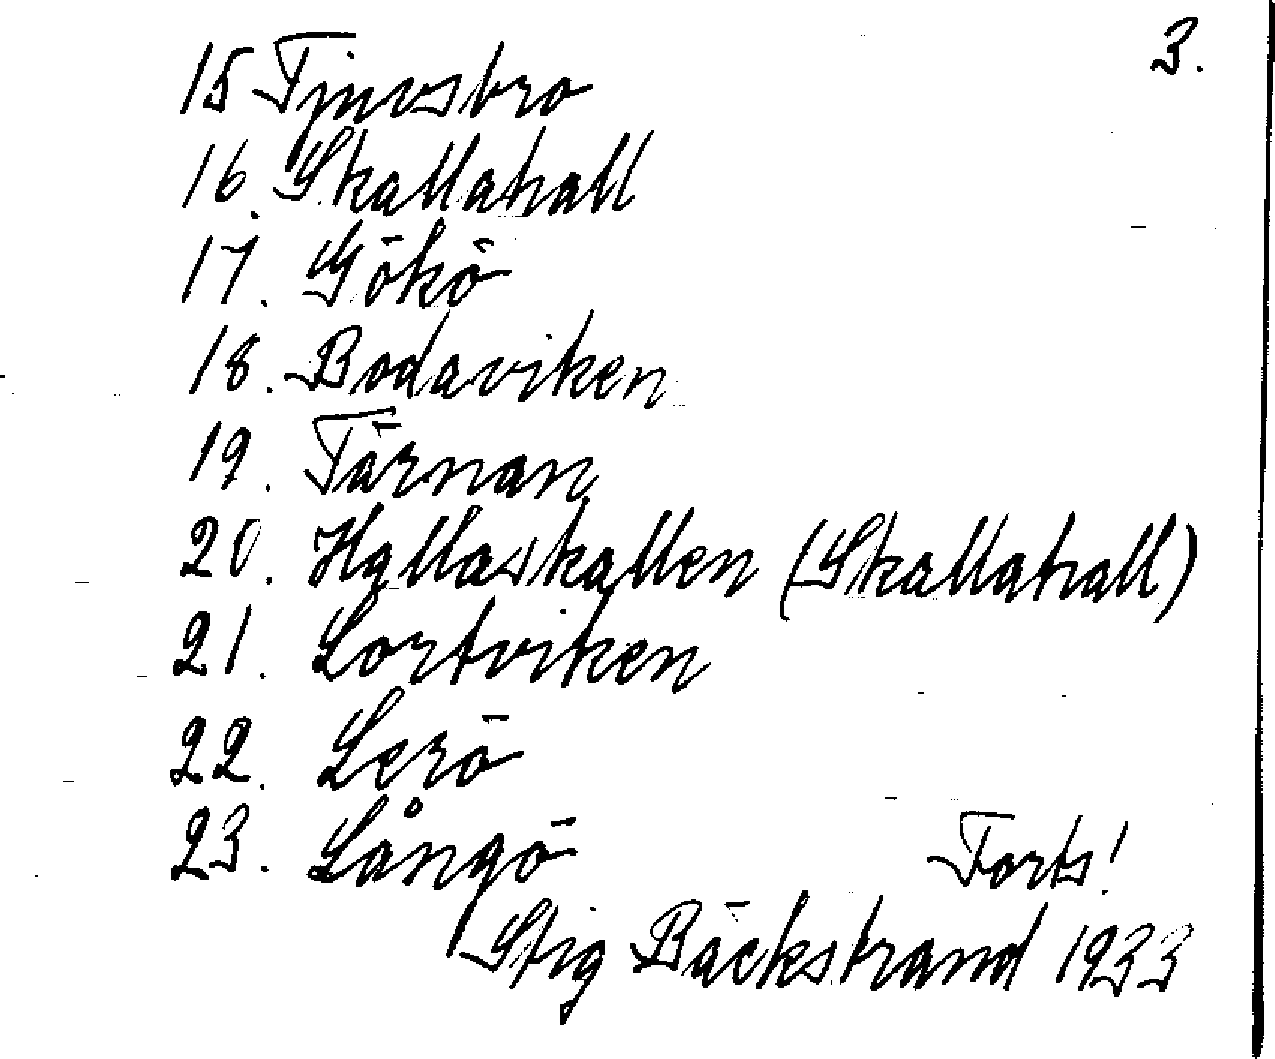 3.
15 Tjuvsbro
16. Skallahall
17. Gökö
18. Bodaviken
19. Tärnan
20. Hallaskallen (Skallahall)
21. Lortviken
22. Lerö
23. Långö
Forts!
Stig Bäckstrand 1933